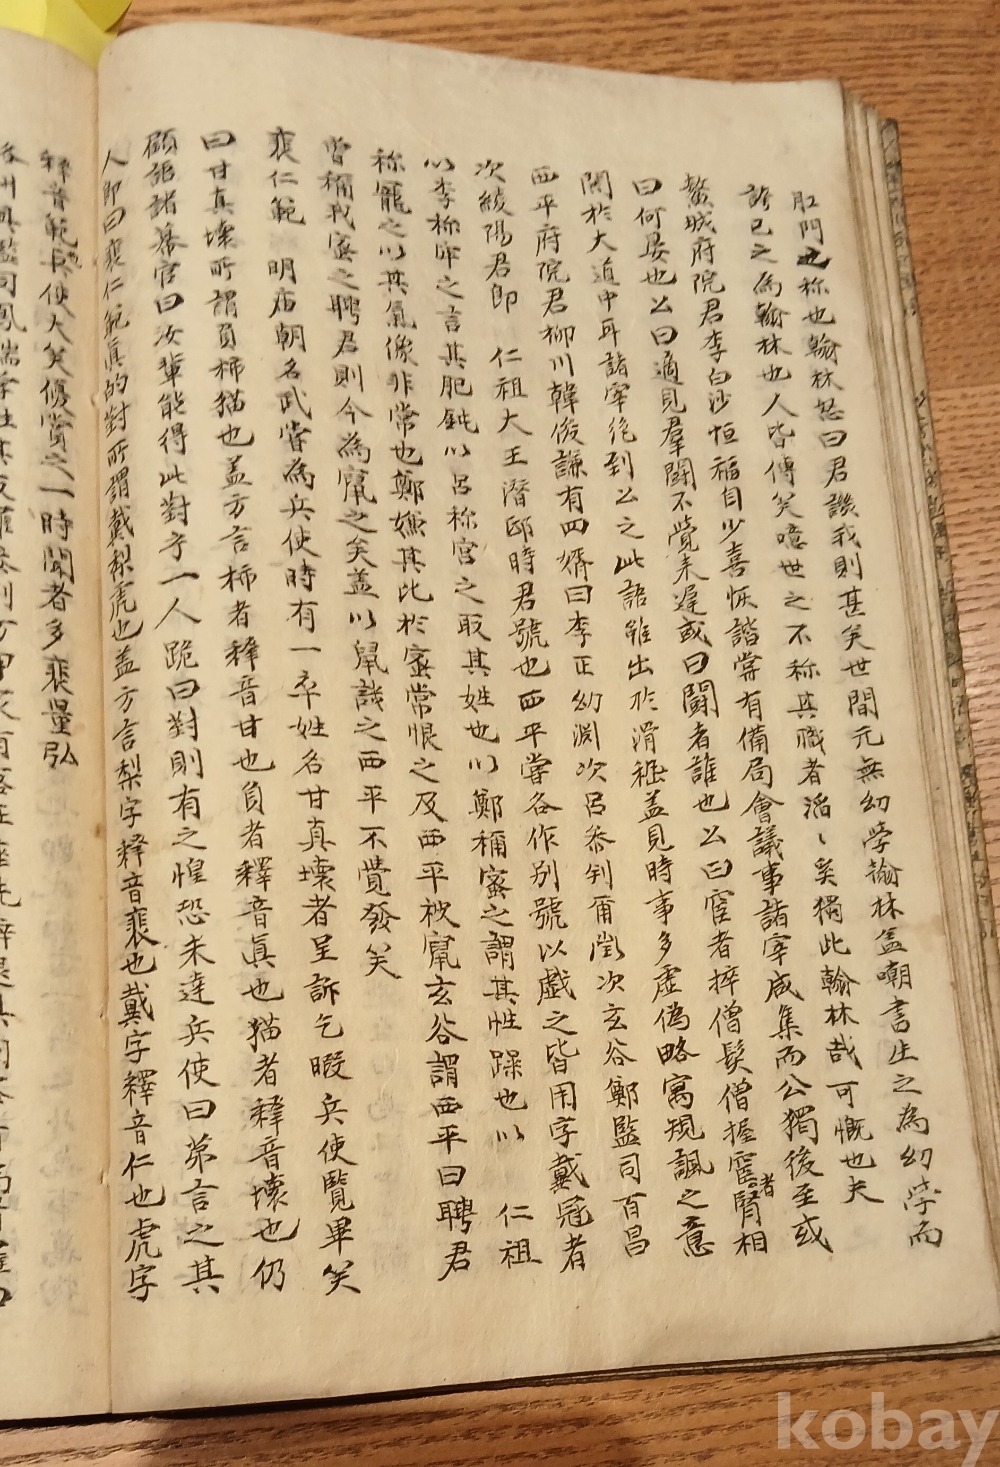 肛門也称也翰林怒曰君譏我則甚矣世間元無幼学翰林盖嘲書生之為幼学而
誇己之為翰林也人皆傳笑噫世之不称其職者滔〻矣獨此翰林哉可慨也夫
鰲城府院君李白沙恒福自少喜恢諧嘗有備局會議事諸宰咸集而公獨後至或
曰何晏也公曰適見羣鬪不覚来遲或曰鬪者誰也公曰宦者捽僧髮僧握宦者腎相
鬪於大道中耳諸宰絶到公之此語雖出於滑稽盖見時事多虛僞略寓規諷之意
西平府院君柳川韓俊謙有四壻曰李正幼淵次呂參判爾徵次玄谷鄭監司百昌
次綾陽君即 仁祖大王潛邸時君號也西平嘗各作别號以戲之皆用字戴冠者
以李称牢之言其肥鈍以呂称宫之取其姓也以鄭稱蜜之謂其性躁也以 仁祖
称寵之以其氣像非常也鄭嫌其比於蜜常恨之及西平被竄玄谷謂西平曰聘君
嘗稱我蜜之聘君則今為竄之矣盖以鼠譏之西平不覺發笑
裵仁範 明庙朝名武嘗為兵使時有一卒姓名甘真壊者呈訴乞暇兵使覽畢笑
曰甘真壊所謂負柿猫也盖方言柿者釋音甘也負者釋音真也猫者釋音壊也仍
顧語諸幕官曰汝輩能得此對乎一人跪曰對則有之惶恐未達兵使曰第言之其
人即曰裵仁範真的對所謂戴梨虎也盖方言梨字釋音裵也戴字釋音仁也虎字
釋音範也兵使大笑優賞之一時聞者多裵量弘